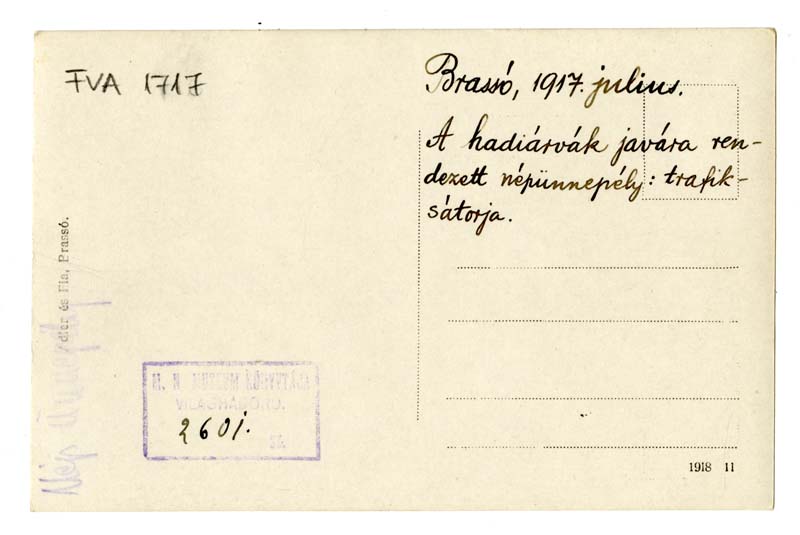 FVA 1717
Brassó, 1917. július.
A hadiárvák javára ren-
dezett népünnepély: trafik-
sátorja.
dler és Fia, Brassó.
Nép
M. N. MUZEUM KÖNYVTÁRA
VILÁGHÁBORU.
2601.
sz.
1918 11